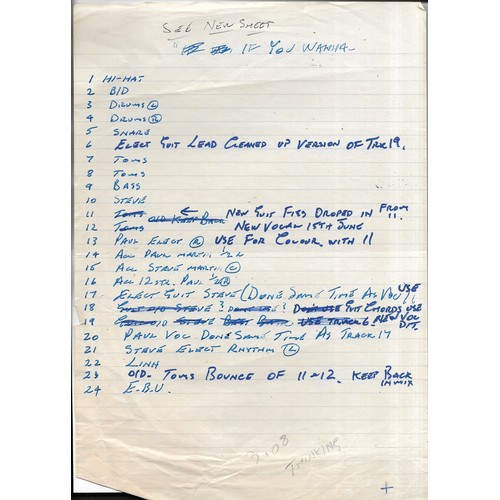 SEE NEW SHEET
" IF YOU WANNA
1 HI-HAT
2 B/D
3 DRUMS (L)
4 DRUMS (R)
5 SNARE
6 ELECT GUIT LEAD CLEANED UP VERSION OF TRK 19.
7 TOMS
8 TOMS
9 BASS
10 STEVE
11 TOMS O/D KEEP BACK ← NEW GUIT FIGS DROPED IN FROM 11.
12 TOMS NEW VOCAL 15TH JUNE
13 PAUL ELECT (R) USE FOR COLOUR WITH 11
14 ACC PAUL MARTIN 1/2 L
15 ACC STEVE MARTIN (C)
16 ACC 12 STR. PAUL 1/2 (R)
17 ELECT GUIT STEVE (DONE SAME TIME AS VOC) USE
18 GUIT O/D STEVE ? DONT USE GUIT CHORDS USE
19 STEVE USE TRACK 6 NEW VOC
20 PAUL VOC DONE SAME TIME AS TRACK 17
21 STEVE ELECT RHYTHM (L)
22 LINN
23 O/D. TOMS BOUNCE OF 11 & 12. KEEP BACK IN MIX
24 E.B.U.
3.08
THINKING
+